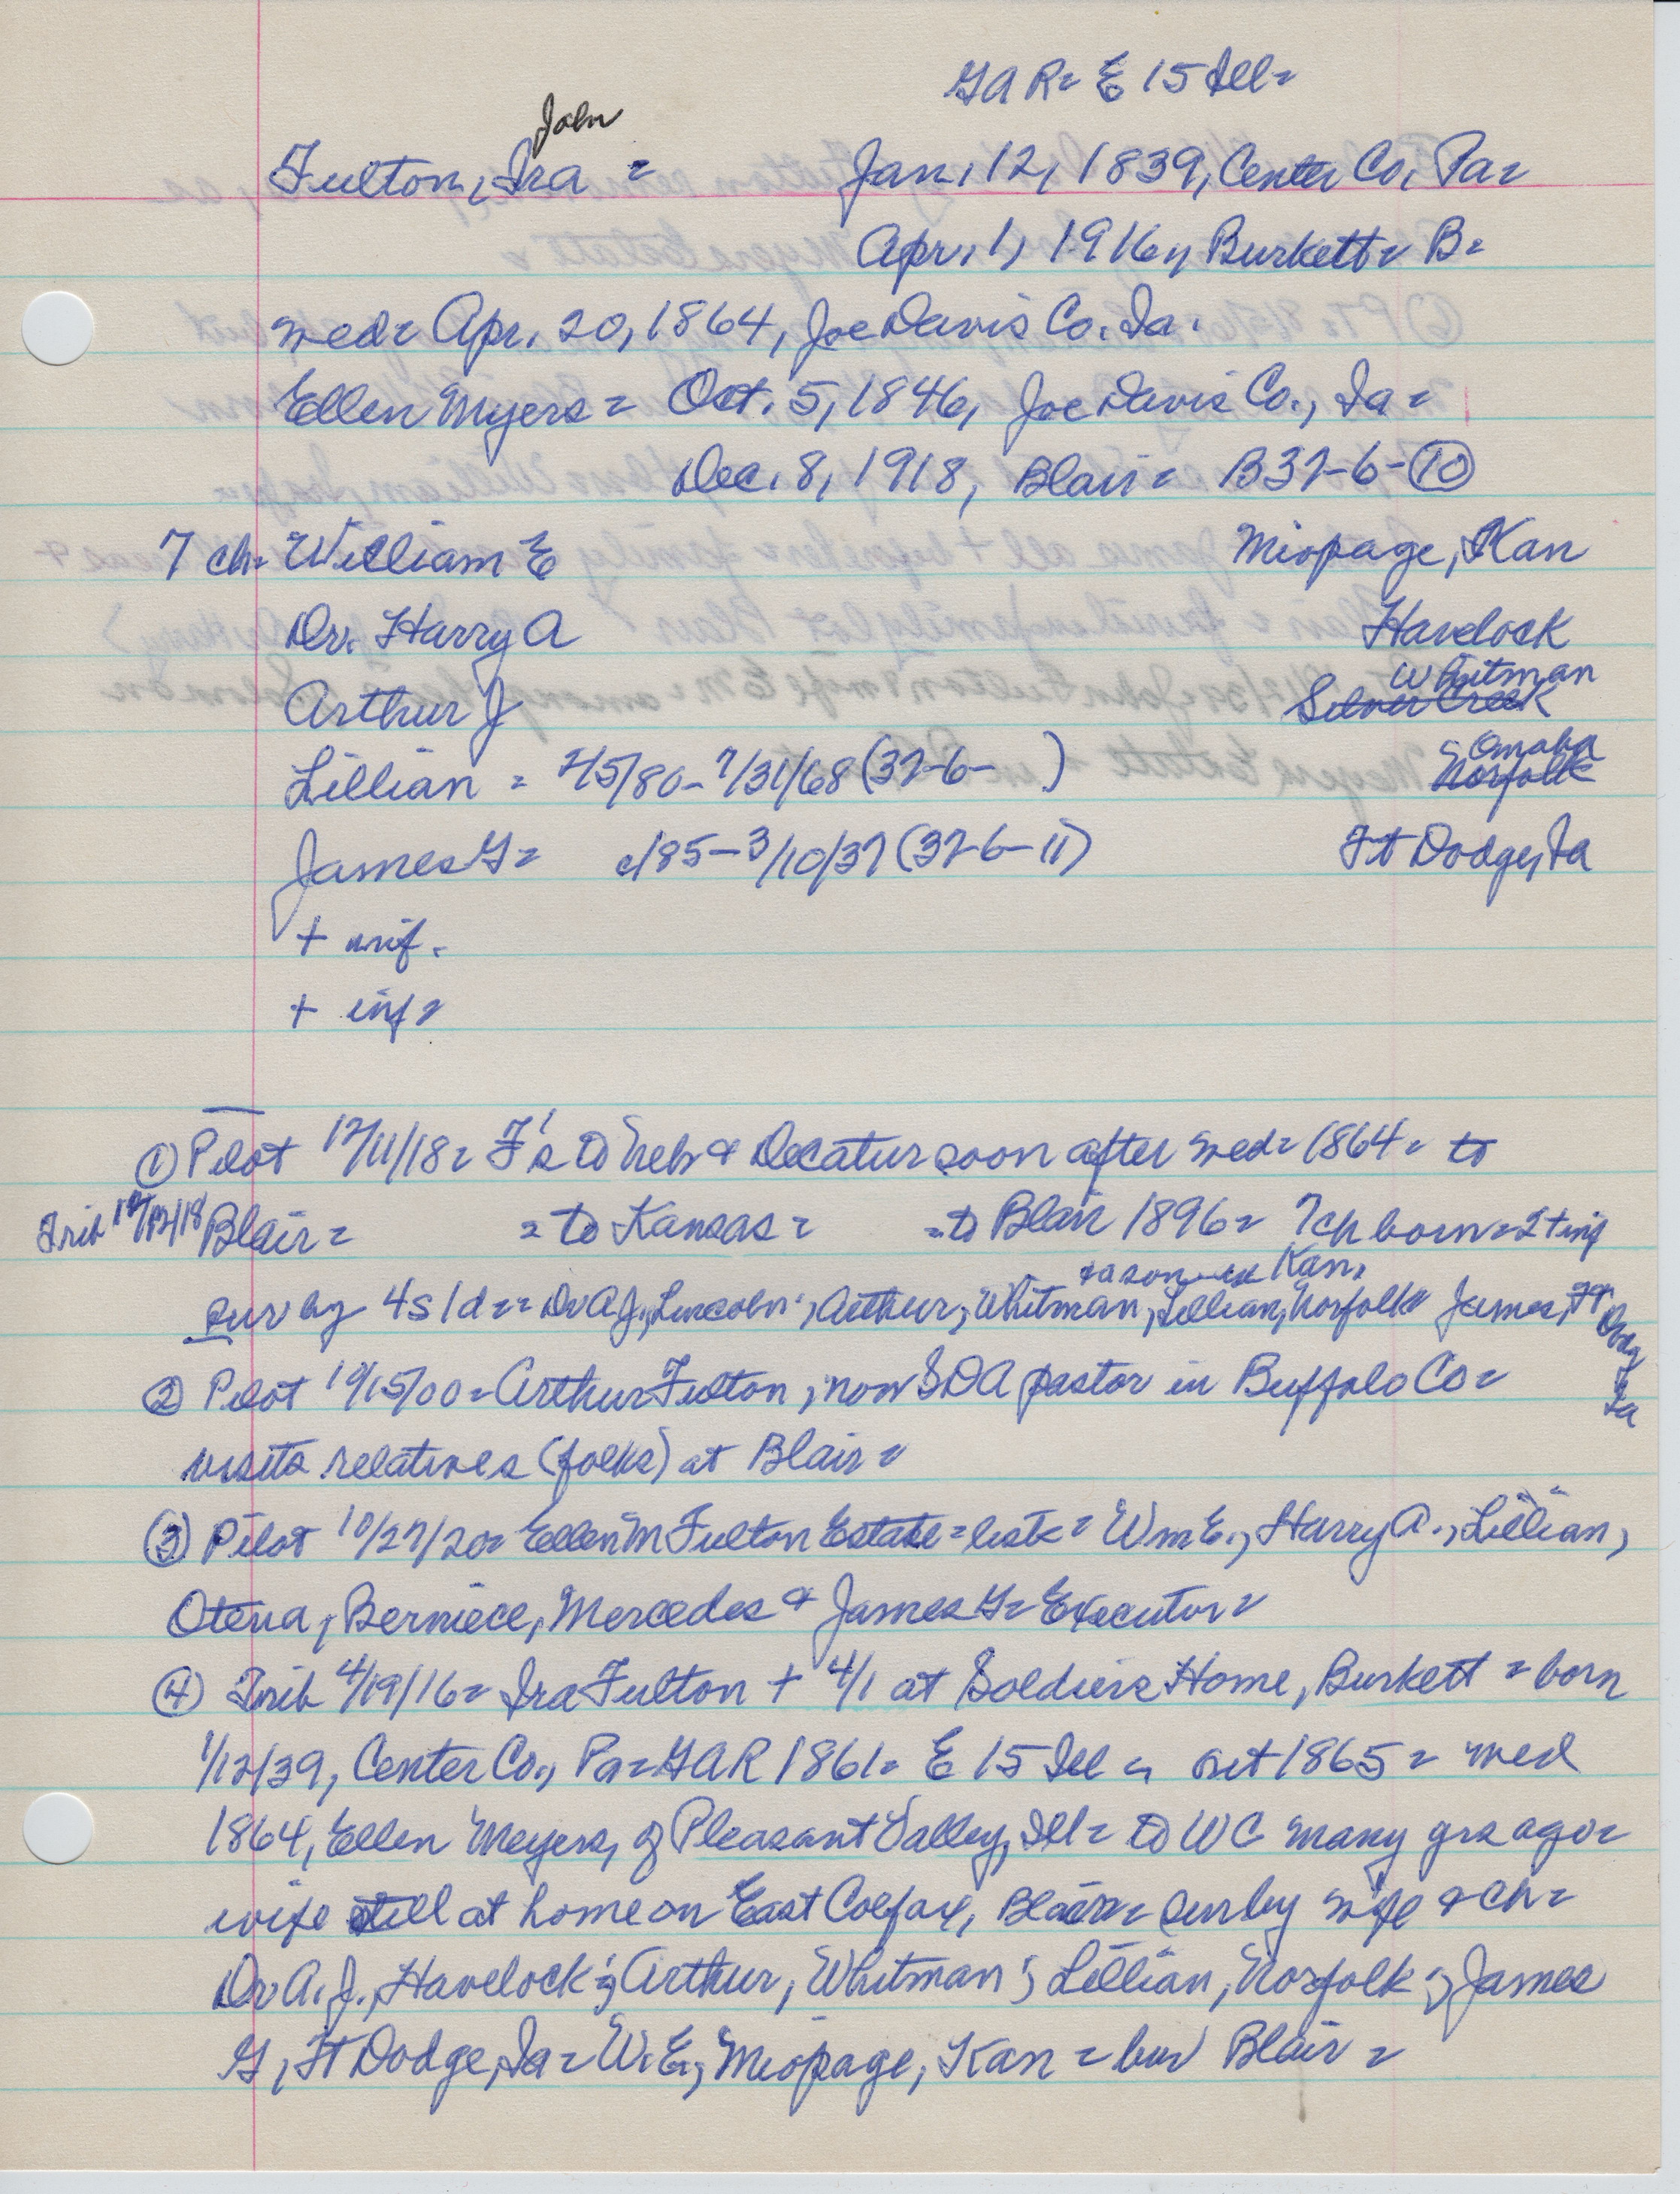 GAR= E 15 Ill=
John
Fulton, Ira = Jan, 12, 1839, Center Co, Pa=
Apr. 1, 1916, Burkett= B=
med= Apr. 20, 1864, Joe Davis Co. Ia.
Ellen Myers = Oct. 5, 1846, Joe Davis Co., Ia =
Dec. 8, 1918, Blair = B37-6-10
7 ch= William E Miopage, Kan
Dr. Harry A Havelock
Whitman
Arthur J Silver Creek
Omaha
Lillian = 2/5/80-7/31/68 (37-6- ) Norfolk
James G= c/85-3/10/37 (37-6-11) Ft Dodge, Ia
+ inf.
+ inf=
① Pilot 12/11/18= F's to Neb & Decatur soon after med= 1864= to
Trib 12/12/18 Blair= = to Kansas= = to Blair 1896= 7 ch born= 2 + inf
& a son in Kan.
sur by 4s 1d == Dr A J., Lincoln; Arthur, Whitman, Lillian, Norfolk James, Ft Dodg Ia
② Pilot 10/15/00= Arthur Fulton, now SDA pastor in Buffalo Co=
visits relatives (folks) at Blair=
③ Pilot 10/27/20= Ellen M Fulton Estate= lists= Wm E., Harry A., Lillian,
Otena, Berniece, Mercedes & James G= Executor=
④ Trib 4/19/16= Ira Fulton + 4/1 at Soldiers Home, Burkett = born
1/12/39, Center Co., Pa= GAR 1861= E 15 Ill = out 1865= med
1864, Ellen Meyers, of Pleasant Valley, Ill= to WC many yrs ago=
wife still at home on East Colfax, Blair= sur by wife & ch=
Dr A. J., Havelock; Arthur, Whitman; Lillian, Norfolk; James
G, Ft Dodge, Ia= W. E., Miopage, Kan = bur Blair =